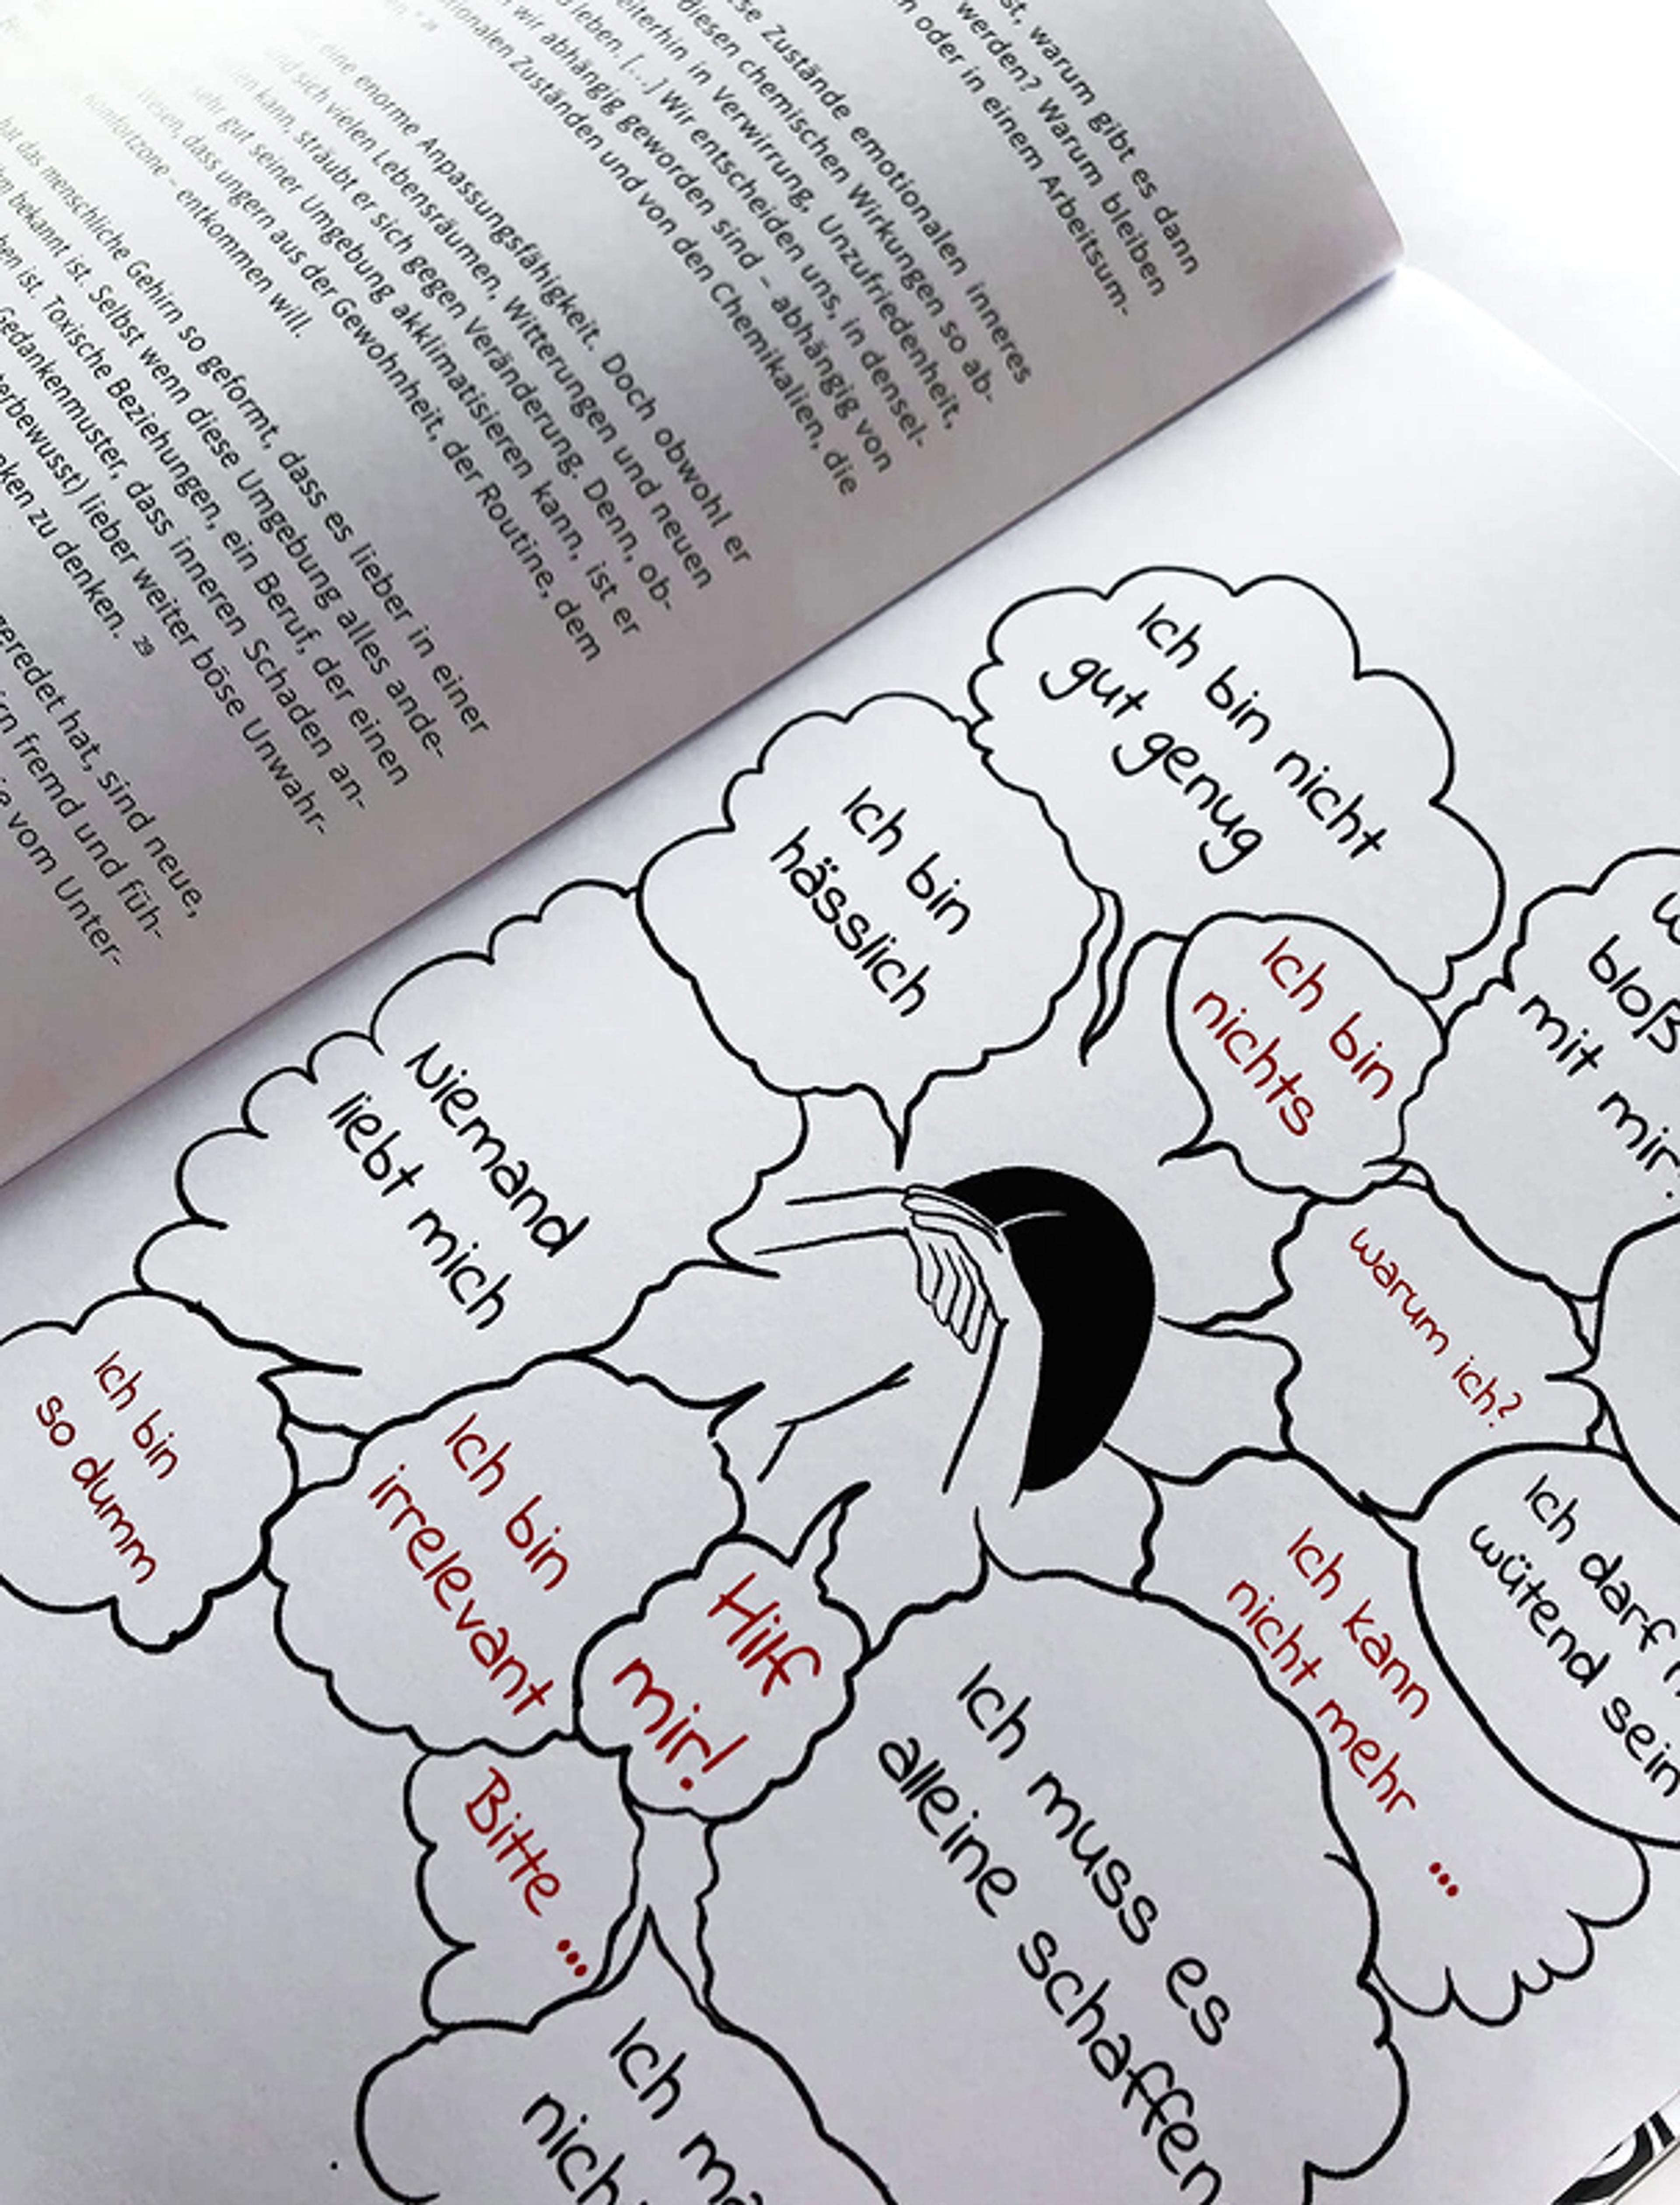 st, warum gibt es dann
werden? Warum bleiben
oder in einem Arbeitsum-
Zustände emotionalen inneres
diesen chemischen Wirkungen so ab-
weiterhin in Verwirrung, Unzufriedenheit,
leben. [...] Wir entscheiden uns, in densel-
wir abhängig geworden sind – abhängig von
Zuständen und von den Chemikalien, die
eine enorme Anpassungsfähigkeit. Doch obwohl er
sich vielen Lebensräumen, Witterungen und neuen
kann, sträubt er sich gegen Veränderung. Denn, ob-
sehr gut seiner Umgebung akklimatisieren kann, ist er
Wesen, dass ungern aus der Gewohnheit, der Routine, dem
Komfortzone – entkommen will.
hat das menschliche Gehirn so geformt, dass es lieber in einer
bekannt ist. Selbst wenn diese Umgebung alles ande-
ist. Toxische Beziehungen, ein Beruf, der einen
Gedankenmuster, dass inneren Schaden an-
lieber weiter böse Unwahr-
zu denken. 29
geredet hat, sind neue,
fremd und füh-
vom Unter-
Ich bin nicht
gut genug
Ich bin
hässlich
Ich bin
nichts
bloß
mit mir?
Niemand
liebt mich
warum ich?
Ich bin
so dumm
Ich bin
irrelevant
Hilf
mir!
Bitte ...
Ich kann
nicht mehr ...
Ich darf
wütend sein
Ich muss es
alleine schaffen
Ich